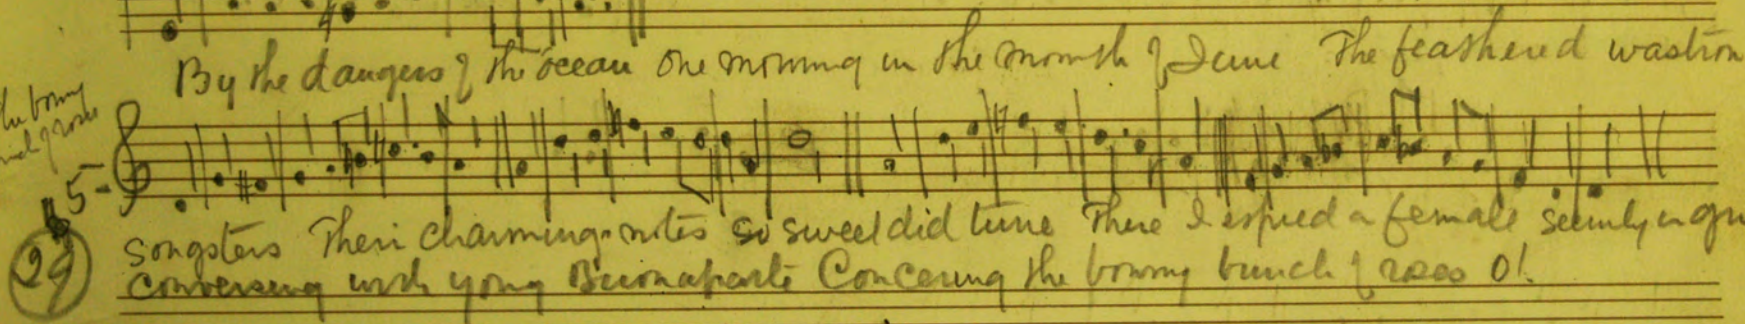 By the dangers of the ocean one morning in the month of June The feathered
the bonny
5-
29
songsters Their charming notes so sweet did tune There I espied a female seemly in
conversing with young Buonaparte Concerning the bonny bunch of roses O!